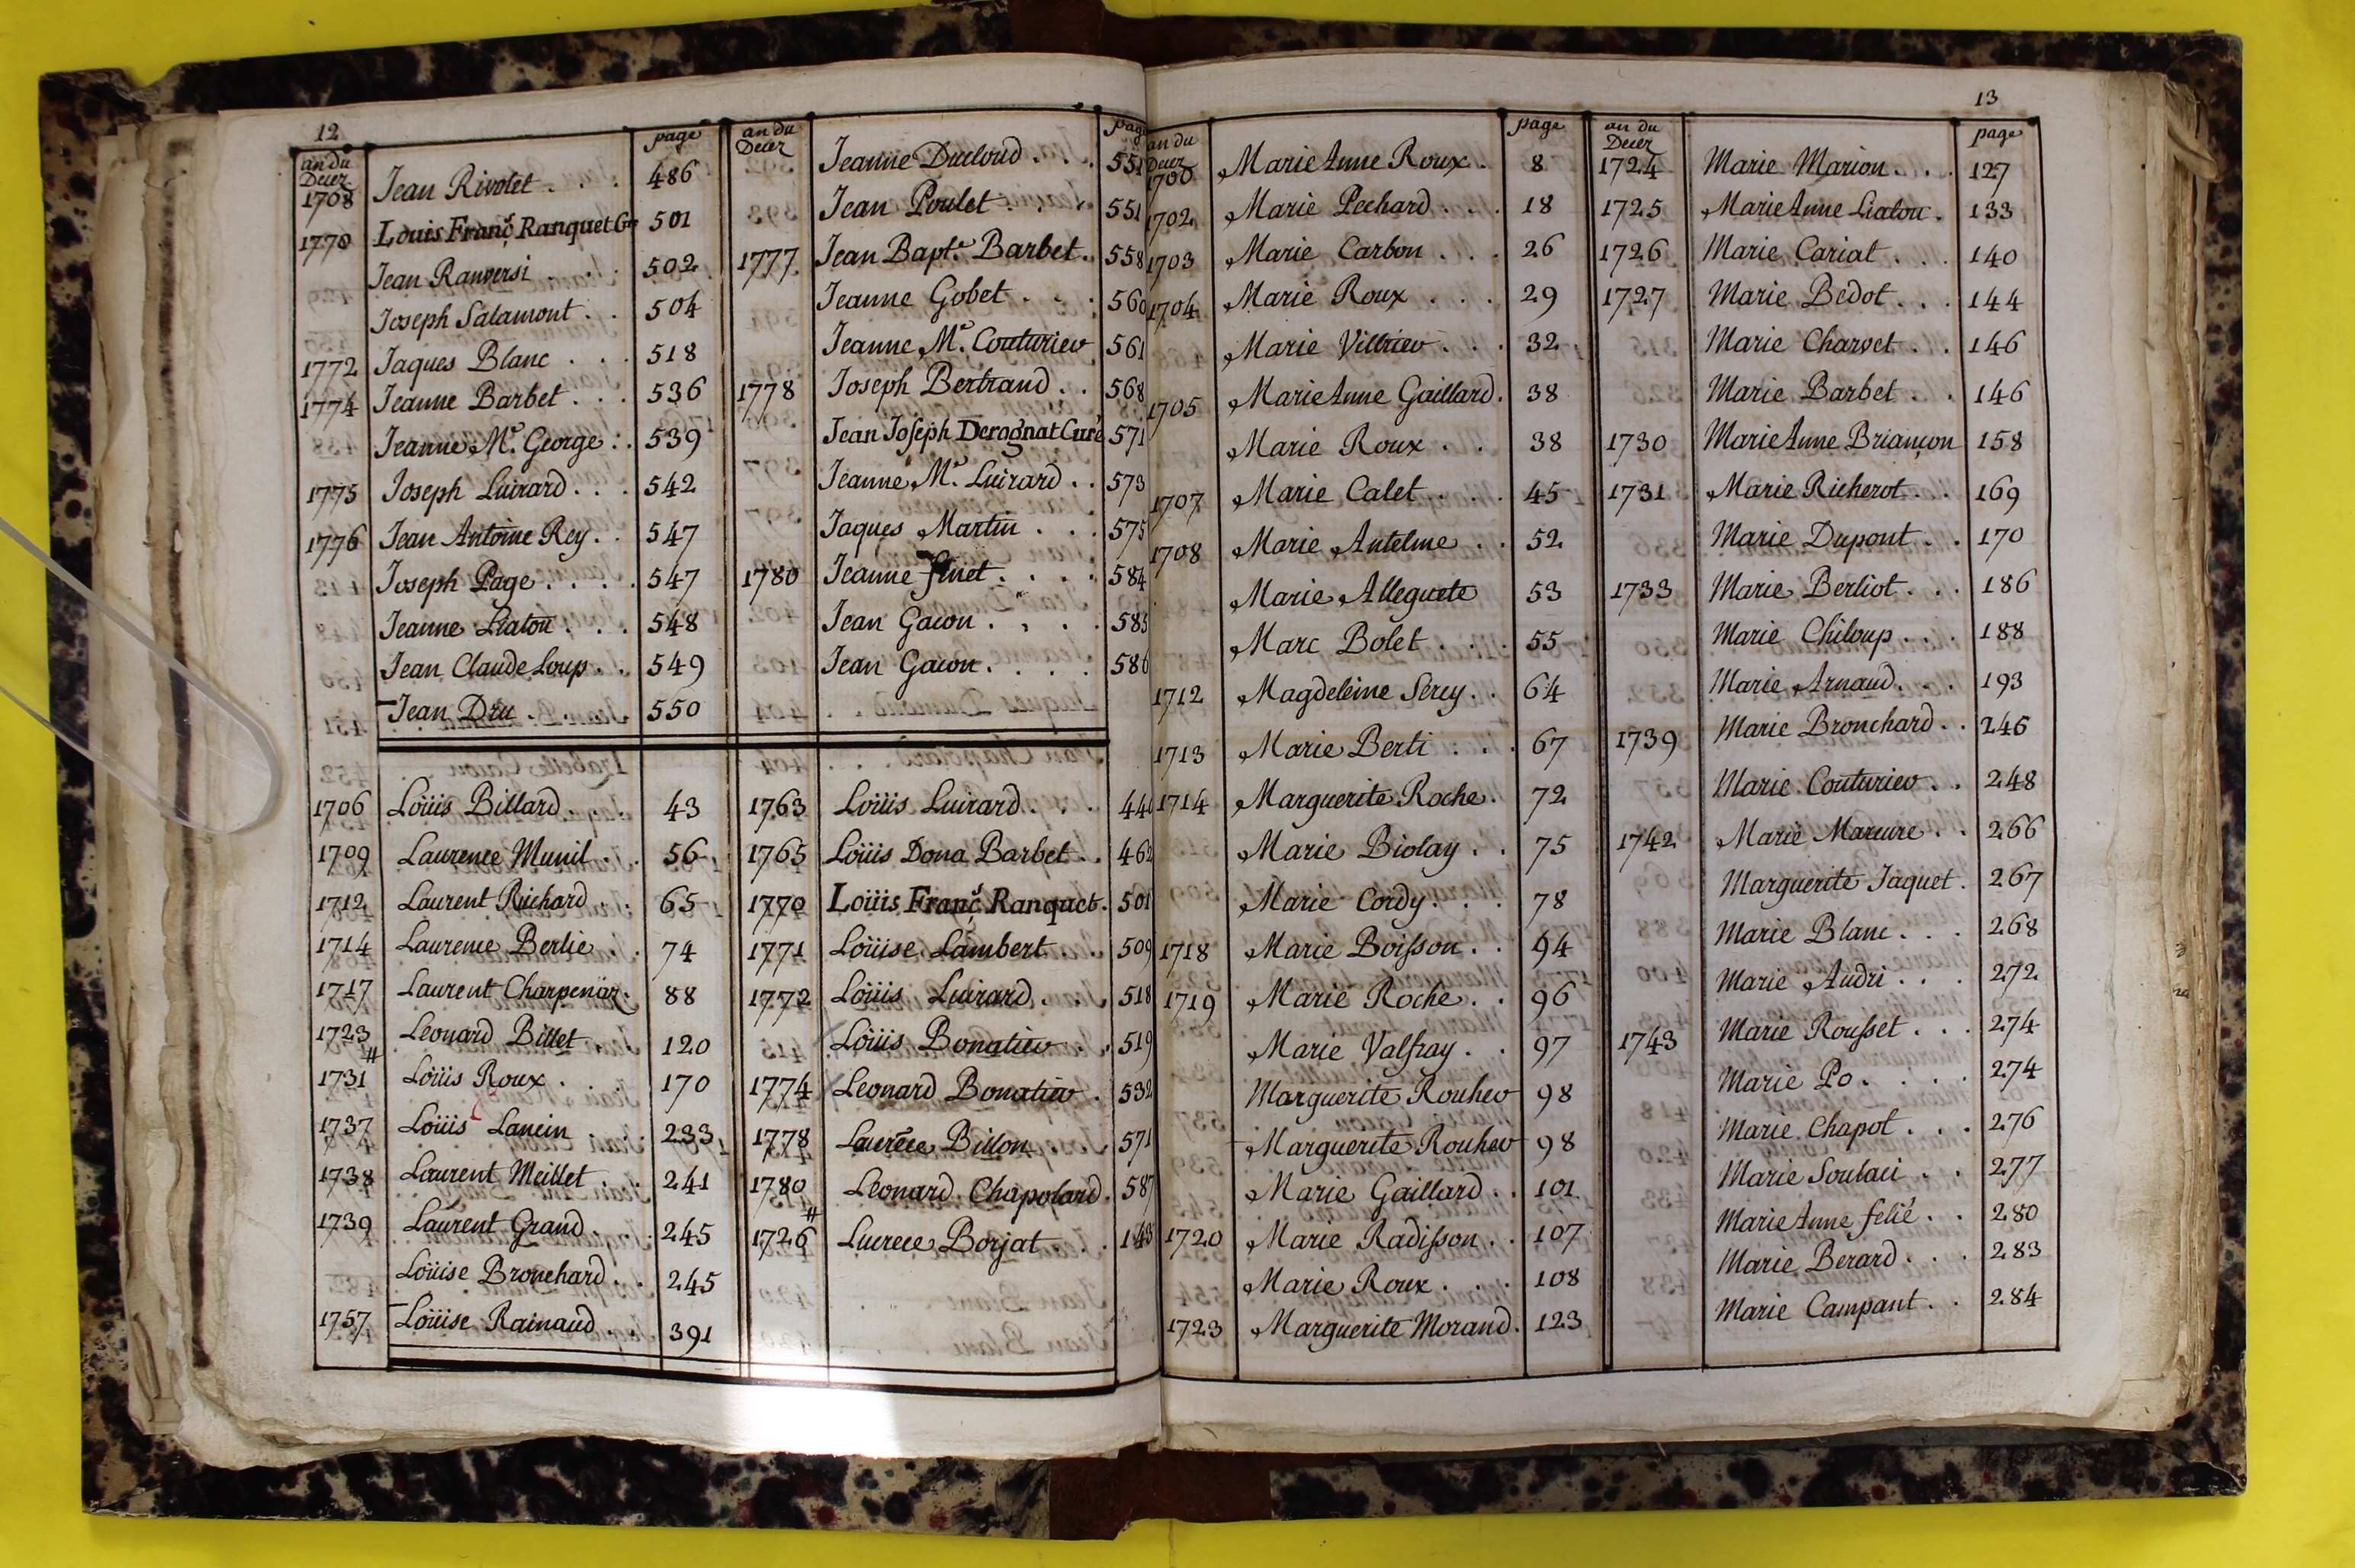 12
an du Decez page
1708 Jean Rivolet . . . 486
1770 Louis Franç.s Ranquet 501
Jean Ranversi . . . 502
Joseph Salamont . . 504
1772 Jaques Blanc . . . 518
1774 Jeanne Barbet . . . 536
Jeanne M.e George . . 539
1775 Joseph Luirard . . . 542
1776 Jean Antoine Rey . . 547
Joseph Page . . . . 547
Jeanne Liatou . . . 548
Jean Claude Loup . . 549
Jean Dru . . . . 550
1706 Loüis Billard . . . 43
1709 Laurence Munil . . 56
1712 Laurent Richard . . 65
1714 Laurence Berlie . . 74
1717 Laurent Charpenaz . 88
1723 Leonard Billet . . 120
1731 Loüis Roux . . . 170
1737 Loüis Lancin . . . 233
1738 Laurent Meillet . . 241
1739 Laurent Grand . . . 245
Loüise Bronchard . . 245
1757 Loüise Rainaud . . 391
an du Decez page
Jeanne Ducloud . . . 551
Jean Poulet . . . . 551
1777 Jean Bapt.e Barbet . . 558
Jeanne Gobet . . . 560
Jeanne M.e Couturier 561
1778 Joseph Bertrand . . 568
Jean Joseph Derognat Curé 571
Jeanne M.e Luirard . . 573
Jaques Martin . . . 575
1780 Jeanne finet . . . . 584
Jean Gacon . . . . 585
Jean Gacon . . . . 586
1763 Loüis Luirard . . . 440
1765 Loüis Dona Barbet . . 462
1770 Loüis Franç.s Ranquet . 501
1771 Loüise Lambert . . . 509
1772 Loüis Luirard . . . 518
Loüis Bonatier . . 519
1774 Leonard Bonatier . 532
1778 Laurēce Billon . . 571
1780 Leonard Chapolard . 587
1726 Lucrece Borjat . . . 143
13
an du Decez page
1700 Marie Anne Roux . 8
1702 Marie Pechard . . . 18
1703 Marie Carbon . . . 26
1704 Marie Roux . . . 29
Marie Villier . . . 32
1705 Marie Anne Gaillard . 38
Marie Roux . . 38
1707 Marie Calet . . . 45
1708 Marie Antelme . . 52
Marie Alleguete 53
Marc Bolet . . . 55
1712 Magdeleine Sercy . . 64
1713 Marie Berti . . . 67
1714 Marguerite Roche . 72
Marie Biolay . . 75
Marie Cordy . . . 78
1718 Marie Boisson . . 94
1719 Marie Roche . . 96
Marie Valfray . . 97
Marguerite Rouher 98
Marguerite Rouher 98
Marie Gaillard . . 101
1720 Marie Radisson . . 107
Marie Roux . . . 108
1723 Marguerite Morand . 123
an du Decez page
1724 Marie Marion . . . 127
1725 Marie Anne Liatou . 133
1726 Marie Cariat . . . 140
1727 Marie Bedot . . . 144
Marie Charvet . . 146
Marie Barbet . . 146
1730 Marie Anne Briançon 158
1731 Marie Richerot . . 169
Marie Dupont . . 170
1733 Marie Berliot . . . 186
Marie Chiloup . . . 188
Marie Arnaud . . . 193
1739 Marie Bronchard . . 246
Marie Couturier . . 248
1742 Marie Marcure . . 266
Marguerite Jaquet . 267
Marie Blanc . . . 268
Marie Audri . . . 272
1743 Marie Rousset . . . 274
Marie Po . . . . 274
Marie Chapot . . . 276
Marie Soulaci . . 277
Marie Anne felié . . 280
Marie Berard . . . 283
Marie Campant . . 284